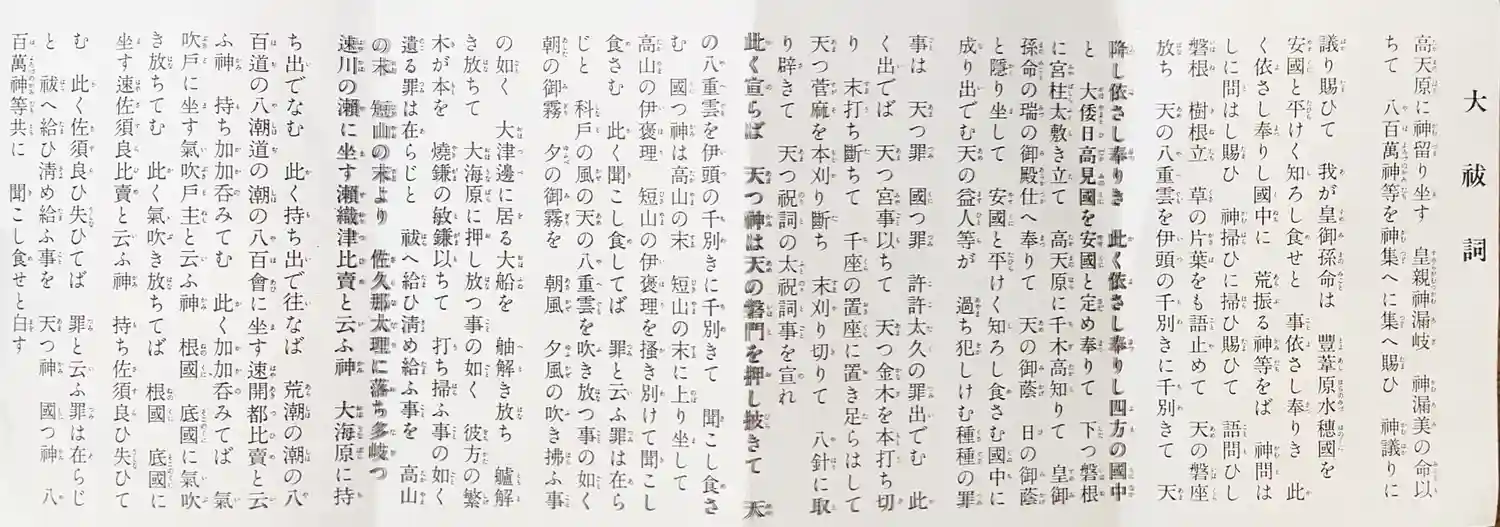 大祓詞
高天原に神留り坐す　皇親神漏岐　神漏美の命以
ちて　八百萬神等を神集へに集へ賜ひ　神議りに
議り賜ひて　我が皇御孫命は　豐葦原水穗國を
安國と平けく知ろし食せと　事依さし奉りき　此
く依さし奉りし國中に　荒振る神等をば　神問は
しに問はし賜ひ　神掃ひに掃ひ賜ひて　語問ひし
磐根　樹根立　草の片葉をも語止めて　天の磐座
放ち　天の八重雲を伊頭の千別きに千別きて　天
降し依さし奉りき　此く依さし奉りし四方の國中
と　大倭日高見國を安國と定め奉りて　下つ磐根
に宮柱太敷き立て　高天原に千木高知りて　皇御
孫命の瑞の御殿仕へ奉りて　天の御蔭　日の御蔭
と隱り坐して　安國と平けく知ろし食さむ國中に
成り出でむ天の益人等が　過ち犯しけむ種種の罪
事は　天つ罪　國つ罪　許許太久の罪出でむ　此
く出でば　天つ宮事以ちて　天つ金木を本打ち切
り　末打ち斷ちて　千座の置座に置き足らはして
天つ菅麻を本刈り斷ち　末刈り切りて　八針に取
り辟きて　天つ祝詞の太祝詞事を宣れ
此く宣らば　天つ神は天の磐門を押し披きて　天
の八重雲を伊頭の千別きに千別きて　聞こし食さ
む　國つ神は高山の末　短山の末に上り坐して
高山の伊褒理　短山の伊褒理を掻き別けて聞こし
食さむ　此く聞こし食してば　罪と云ふ罪は在ら
じと　科戸の風の天の八重雲を吹き放つ事の如く
朝の御霧　夕の御霧を　朝風　夕風の吹き拂ふ事
の如く　大津邊に居る大船を　舳解き放ち　艫解
き放ちて　大海原に押し放つ事の如く　彼方の繁
木が本を　燒鎌の敏鎌以ちて　打ち掃ふ事の如く
遺る罪は在らじと　祓へ給ひ淸め給ふ事を　高山
の末　短山の末より　佐久那太理に落ち多岐つ
速川の瀨に坐す瀨織津比賣と云ふ神　大海原に持
ち出でなむ　此く持ち出で往なば　荒潮の潮の八
百道の八潮道の潮の八百會に坐す速開都比賣と云
ふ神　持ち加加呑みてむ　此く加加呑みてば　氣
吹戸に坐す氣吹戸主と云ふ神　根國　底國に氣吹
き放ちてむ　此く氣吹き放ちてば　根國　底國に
坐す速佐須良比賣と云ふ神　持ち佐須良ひ失ひて
む　此く佐須良ひ失ひてば　罪と云ふ罪は在らじ
と　祓へ給ひ淸め給ふ事を　天つ神　國つ神　八
百萬神等共に　聞こし食せと白す